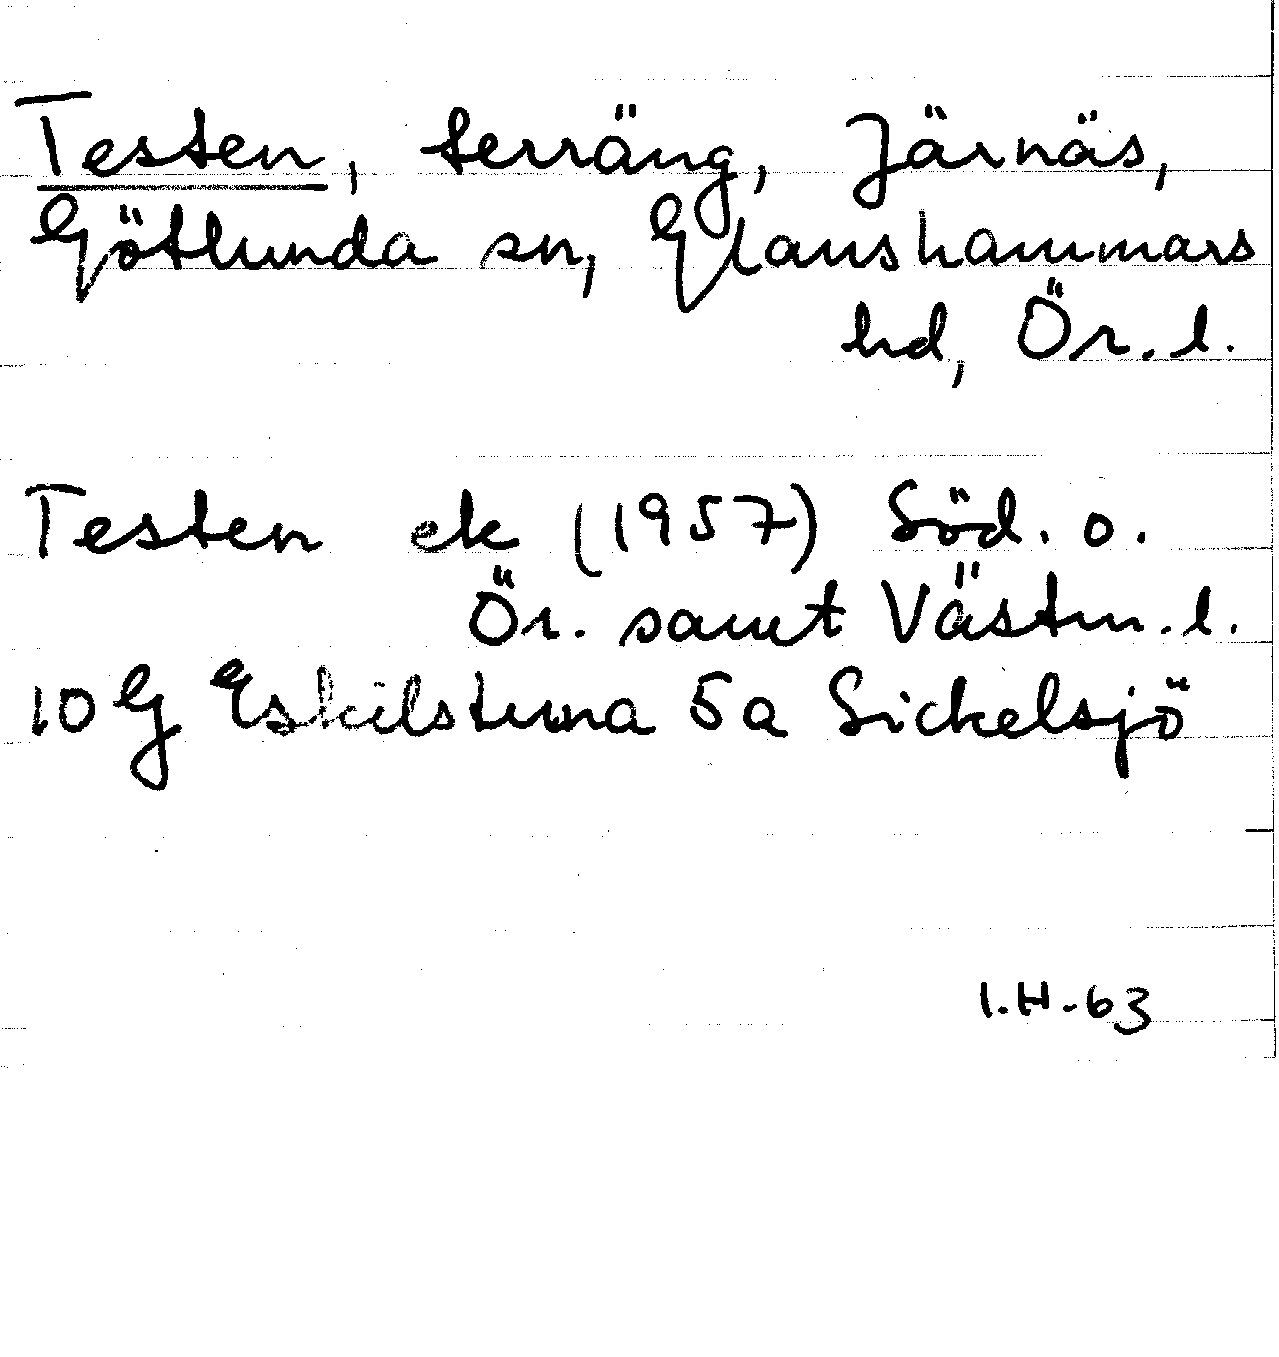 Testen, terräng, Järnäs,
Götlunda sn, Glanshammars
hd, Ör. l.
Testen ek (1957) Söd. o.
Ör. samt Västm. l.
10 G Eskilstuna 5a Sickelsjö
I.H-63